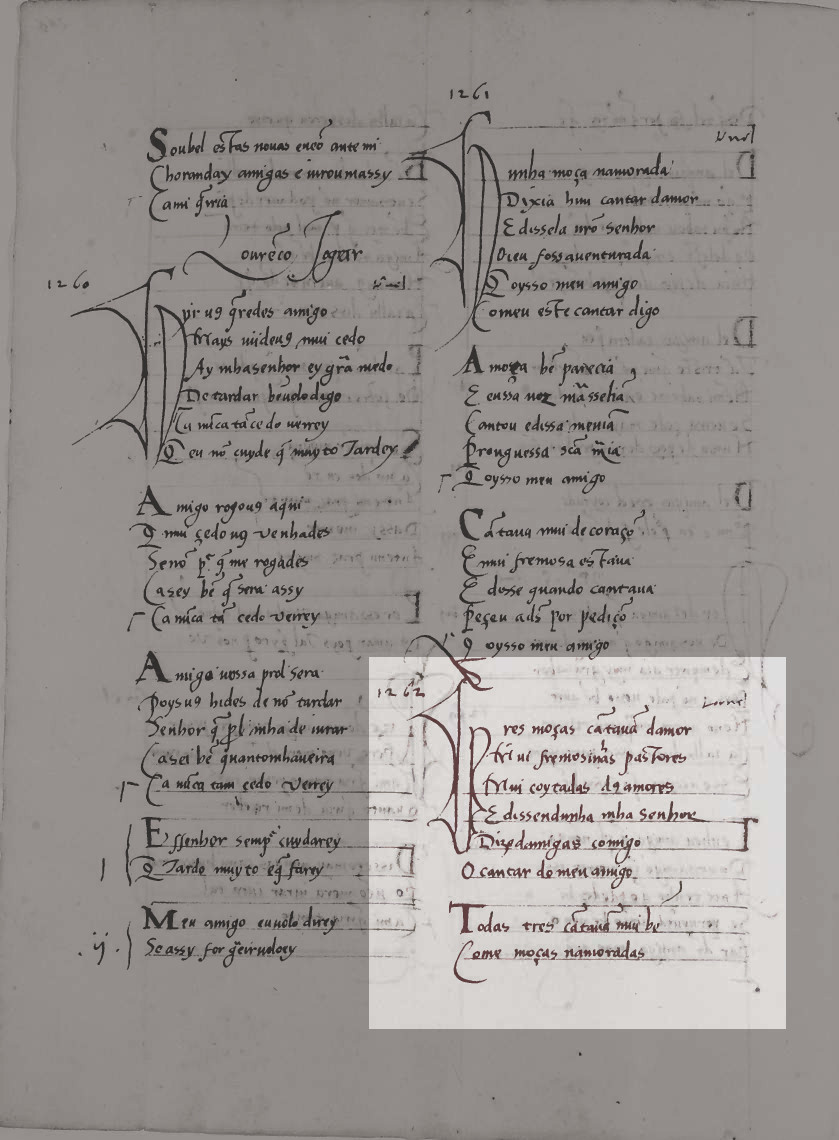 Soubel estas nouas eneo ante mi
Choranday amigas e ivroumassy
Ca mi q̃ria
Lourẽco Jograr
1260
pir uꝯ q̃redes amigo
Mays uiideuꝯ mui cedo
Ay mhasenhor ey grã medo
De tardar bẽ uolo digo
Ca nũca tã cedo verrey
Q̃ eu nõ cuyde q̃ muyto Tardey
Amigo rogouꝯ aqui
Q̃ mui çedo uꝯ venhades
Senõ p̱ q̃ me rogades
Ca sey bẽ q̃ sera assy
Ca nũca tã cedo verrey
Amiga uossa prol sera
Poys uꝯ hides de nõ tardar
Senhor q̃ prol mha de iurar
Ca sei bẽ quantomhaueira
Ca nũca tam cedo verrey
j
E ssenhor semp̃ cuydarey
Q̃ Tardo muyto e q̃ farey
.ij.
Meu amigo eu uolo direy
Se assy for
1261
Unha moça namorada
Dizia hun cantar damor
E dissela nr̃o senhor
Oieu fossauenturada
Q̃ oysso meu amigo
Comeu este cantar digo
A moça bẽ pareçia
E eussa uoz mãssesia
Cantou e dissa meniã
Prouguessa scã mia
Q̃ oysso meu amigo
Cãtaua mui de coraçõ
E mui fremosa estaua
E disse quando cantaua
Peçeu a ds̃ por pediçõ
Q̃ oysso meu amigo
1262
Tres moças cãtauã damor
Mui fremosinhas pastores
Mui coytadas dꝯ amores
E dissendunha mha senhor
Dized amigas comigo
O cantar do meu amigo
Todas tres cãtauã mui bẽ
Come moças namoradas